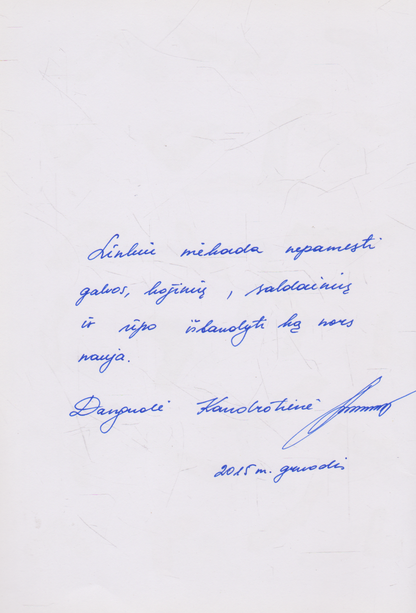 Linkiu niekada nepamesti
galvos, kojinių, saldainių
ir ūpo išbandyti ką nors
nauja.
Danguolė Kandrotienė
2015 m. gruodis